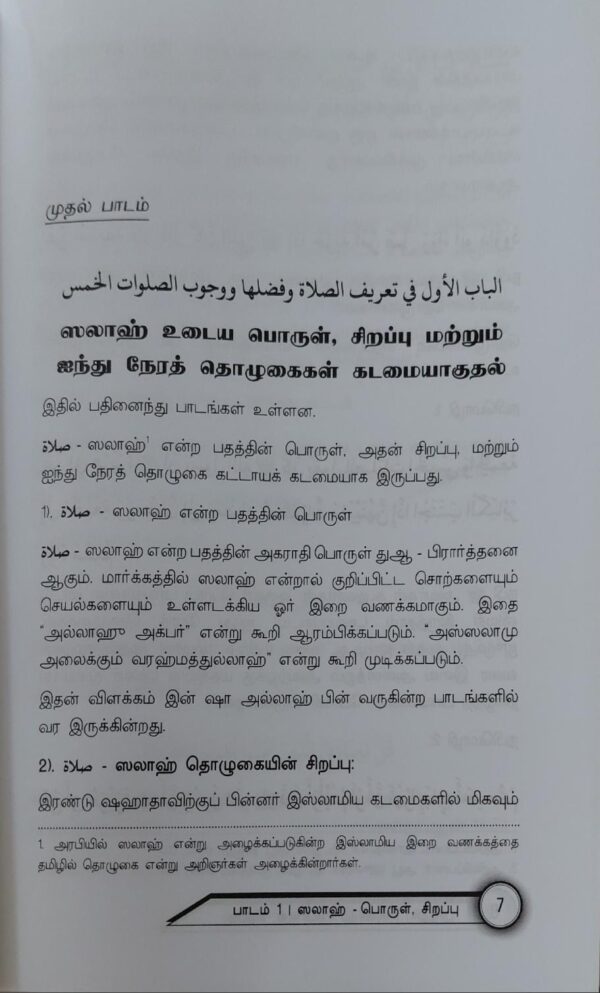 முதல் பாடம்
الباب الأول في تعريف الصلاة وفضلها ووجوب الصلوات الخمس
ஸலாஹ் உடைய பொருள், சிறப்பு மற்றும்
ஐந்து நேரத் தொழுகைகள் கடமையாகுதல்
இதில் பதினைந்து பாடங்கள் உள்ளன.
صلاة - ஸலாஹ்¹ என்ற பதத்தின் பொருள், அதன் சிறப்பு, மற்றும்
ஐந்து நேரத் தொழுகை கட்டாயக் கடமையாக இருப்பது.
1). صلاة - ஸலாஹ் என்ற பதத்தின் பொருள்
صلاة - ஸலாஹ் என்ற பதத்தின் அகராதி பொருள் துஆ - பிரார்த்தனை
ஆகும். மார்க்கத்தில் ஸலாஹ் என்றால் குறிப்பிட்ட சொற்களையும்
செயல்களையும் உள்ளடக்கிய ஓர் இறை வணக்கமாகும். இதை
“அல்லாஹு அக்பர்” என்று கூறி ஆரம்பிக்கப்படும். “அஸ்ஸலாமு
அலைக்கும் வரஹ்மத்துல்லாஹ்” என்று கூறி முடிக்கப்படும்.
இதன் விளக்கம் இன் ஷா அல்லாஹ் பின் வருகின்ற பாடங்களில்
வர இருக்கின்றது.
2). صلاة - ஸலாஹ் தொழுகையின் சிறப்பு:
இரண்டு ஷஹாதாவிற்குப் பின்னர் இஸ்லாமிய கடமைகளில் மிகவும்
1. அரபியில் ஸலாஹ் என்று அழைக்கப்படுகின்ற இஸ்லாமிய இறை வணக்கத்தை
தமிழில் தொழுகை என்று அறிஞர்கள் அழைக்கின்றார்கள்.
பாடம் 1 | ஸலாஹ் - பொருள், சிறப்பு 7